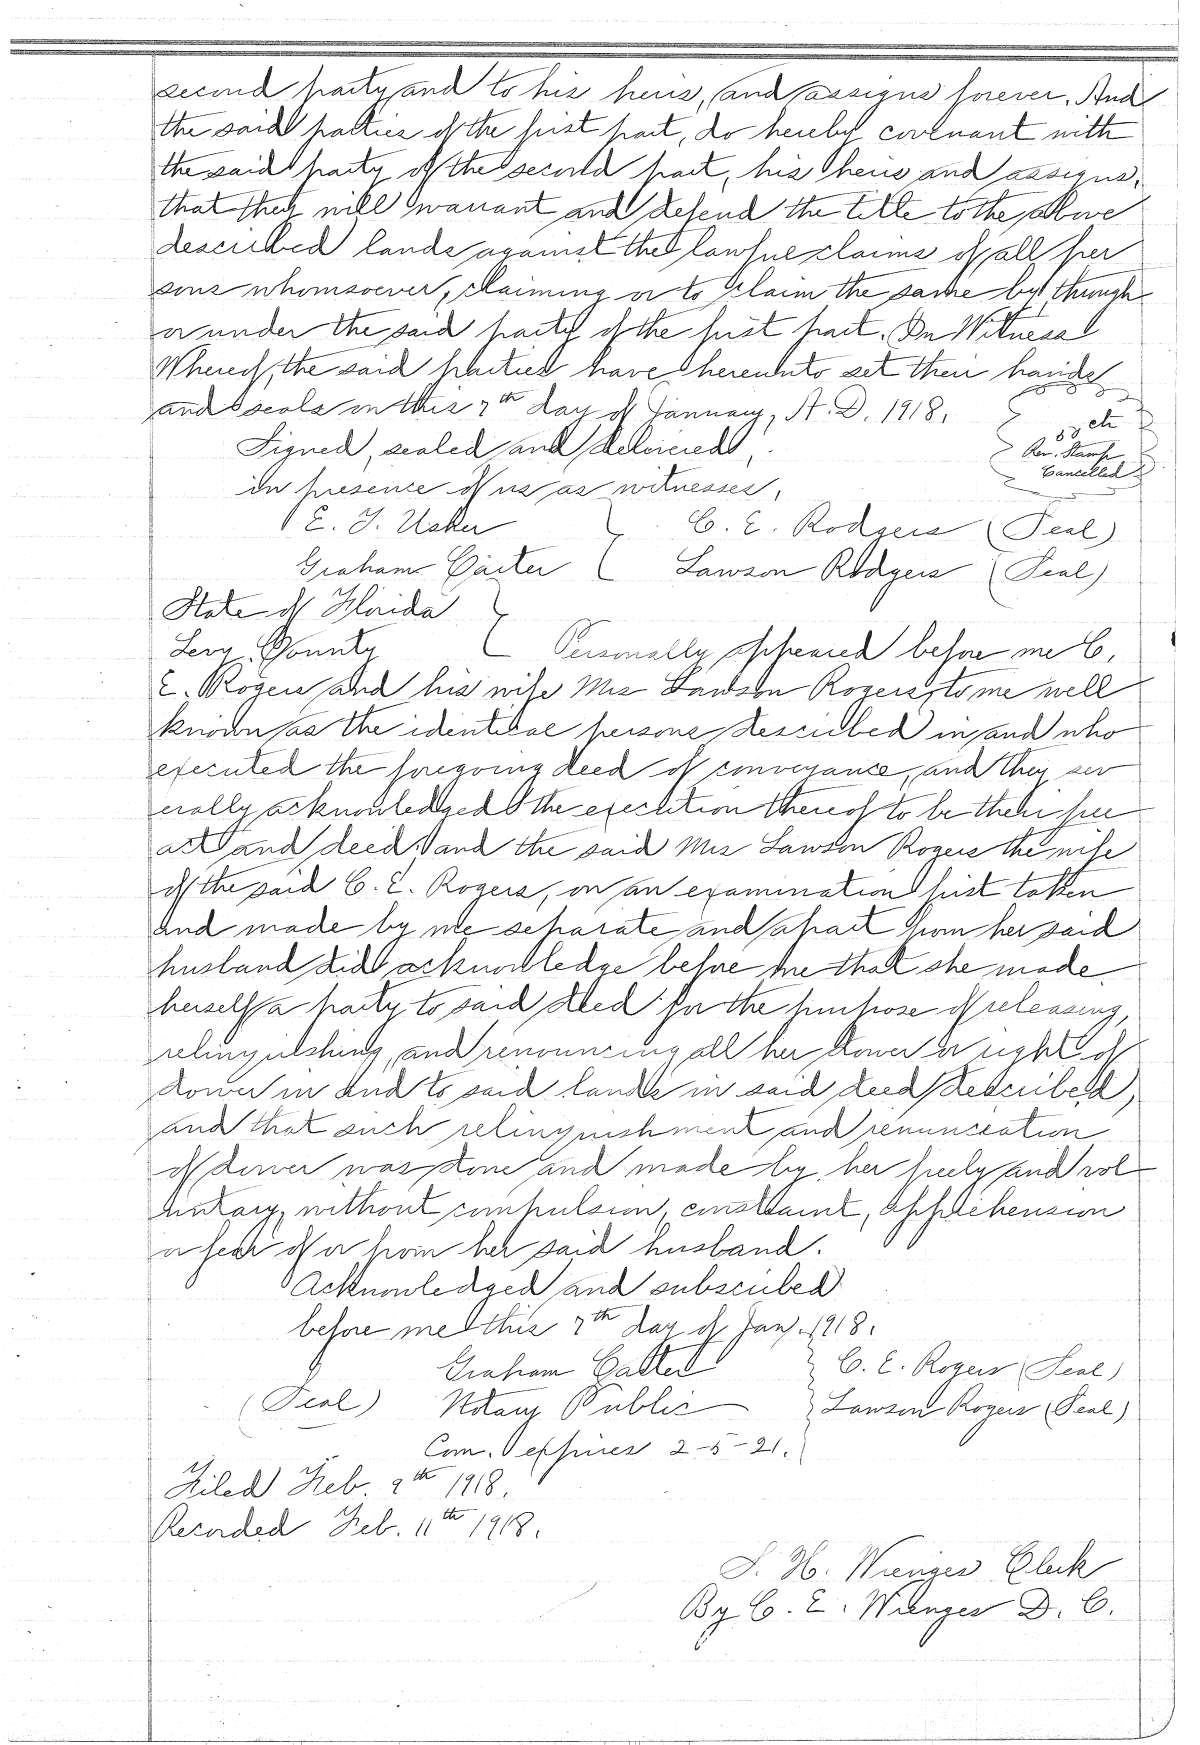 second party and to his heirs, and assigns forever. And
the said parties of the first part, do hereby covenant with
the said party of the second part, his heirs and assigns,
that they will warrant and defend the title to the above
described lands against the lawful claims of all per
sons whomsoever, claiming or to claim the same by, through
or under the said party of the first part. In Witness
Whereof, the said parties have hereunto set their hands
and seals on this 7th day of January, A. D. 1918.
cts
Signed, sealed and delivered,
Rev. Stamp
Cancelled
in presence of us as witnesses,
E. J. Usher C. E. Rodgers (Seal)
Graham Carter Lawson Rodgers (Seal)
State of Florida
Levy County Personally appeared before me C.
E. Rogers and his wife Mrs Lawson Rogers, to me well
known as the identical persons described in and who
executed the foregoing deed of conveyance, and they sev
erally acknowledged the execution thereof to be their free
act and deed; and the said Mrs Lawson Rogers the wife
of the said C. E. Rogers, on an examination first taken
and made by me separate and apart from her said
husband did acknowledge before me that she made
herself a party to said deed for the purpose of releasing,
relinquishing, and renouncing all her dower or right of
dower in and to said lands in said deed described,
and that such relinquishment and renunciation
of dower was done and made by her freely and vol
untary, without compulsion, constraint, apprehension
or fear of or from her said husband.
Acknowledged and subscribed
before me this 7th day of Jan. 1918.
Graham Carter C. E. Rogers (Seal)
(Seal) Notary Public Lawson Rogers (Seal)
Com. expires 2-5-21.
Filed Feb. 9th 1918.
Recorded Feb. 11th 1918.
S. H. Wienges Clerk
By C. E. Wienges D. C.